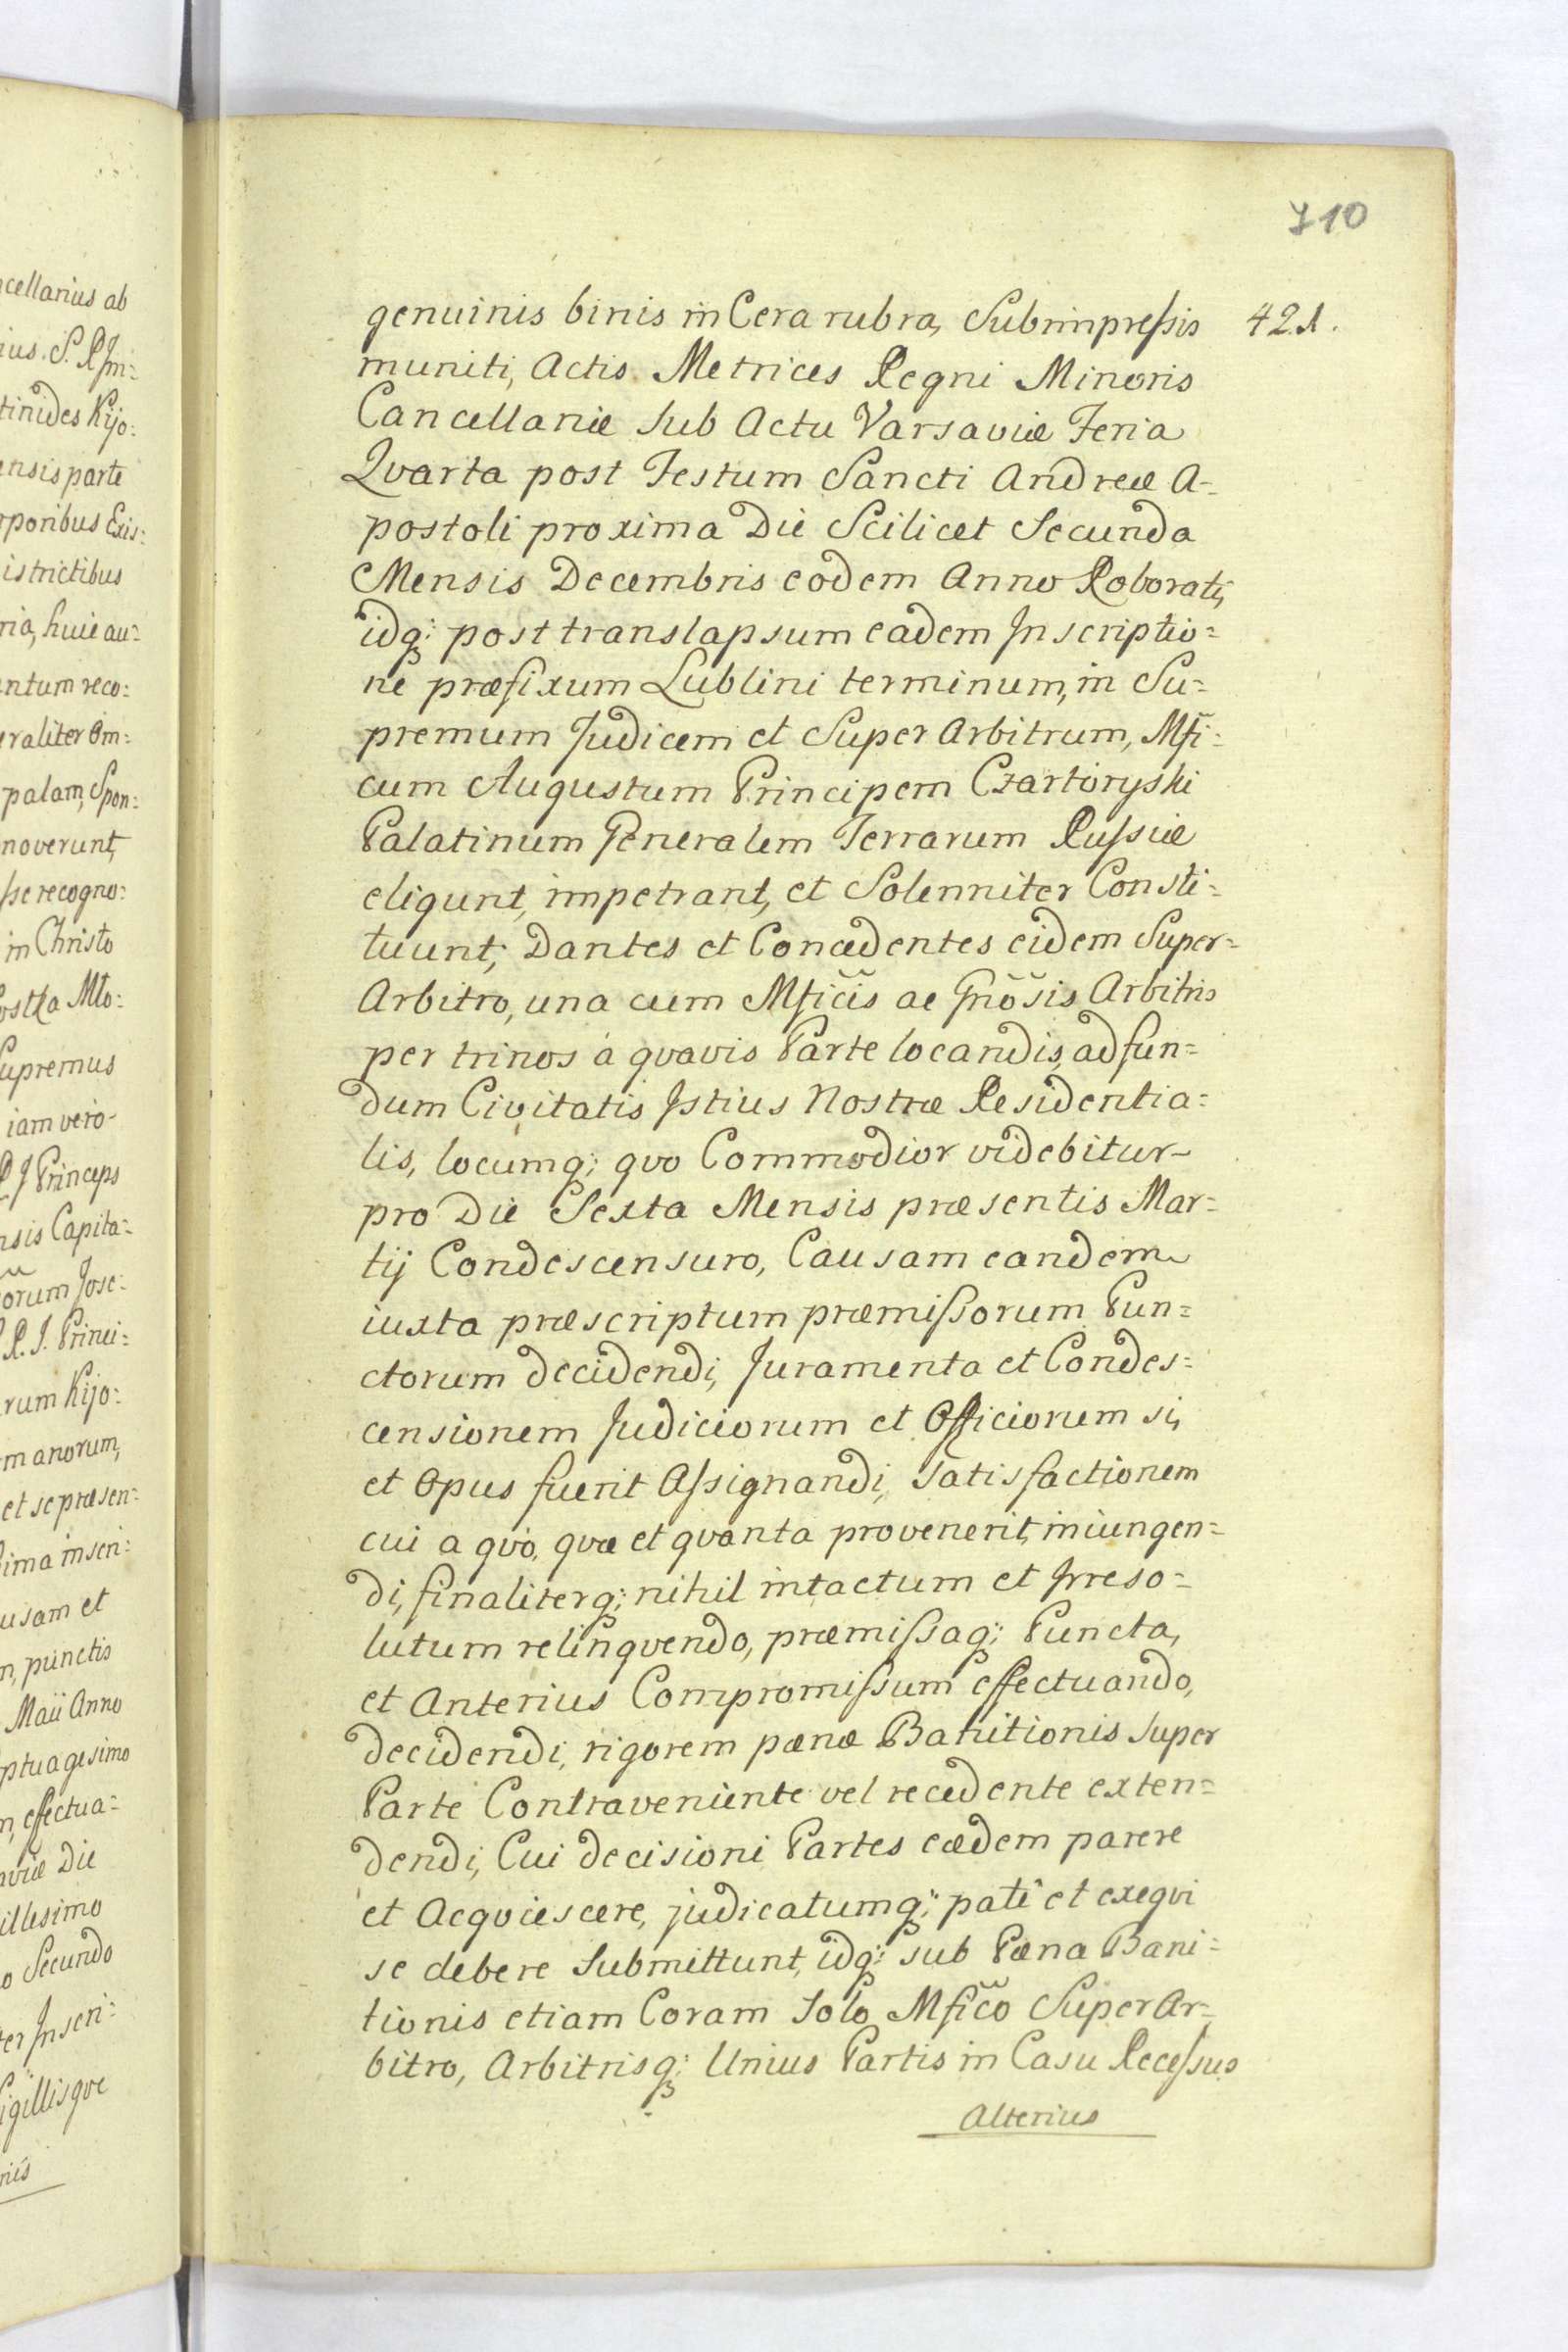 710
genuinis binis in Cera rubra, Subimpressis 421.
muniti, Actis Metrices Regni Minoris
Cancellariæ sub Actu Varsaviæ Feria
Qvarta post Festum Sancti Andreæ A-
postoli proxima Die Scilicet Secunda
Mensis Decembris eodem Anno Roborati,
idq; post translapsum eadem Inscriptio=
ne præfixum Lublini terminum, in Su=
premum Judicem et Super Arbitrum, Mfi=
cum Augustum Principem Czartoryski
Palatinum Generalem Terrarum Russiæ
eligunt, impetrant, et Solenniter Consti=
tuunt; Dantes et Concedentes eidem Super=
Arbitro, una cum Mficis ac Gnosis Arbitris
per trinos à qvavis Parte locandis, ad fun=
dum Civitatis Istius Nostræ Residentia=
lis, locumq; qvo Commodior videbitur
pro Die Sexta Mensis præsentis Mar=
tij Condescensuro, Causam eandem
iuxta præscriptum præmissorum Pun=
ctorum decidendi, Juramenta et Condes=
censionem Judiciorum et Officiorum si,
et Opus fuerit Assignandi, Satisfactionem
cui a qvo, qvæ et qvanta provenerit, iniungen=
di, finaliterq; nihil intactum et Irreso=
lutum relinqvendo, præmissaq; Puncta,
et Anterius Compromissum effectuando,
decidendi, rigorem pænæ Banitionis super
Parte Contraveniente vel recedente exten=
dendi, Cui decisioni Partes eædem parere
et Acqviescere, judicatumq; pati et exeqvi
se debere Submittunt, idq; sub Pæna Bani=
tionis etiam Coram Solo Mfico Super Ar=
bitro, Arbitrisq; Unius Partis in Casu Recessus
Alterius
cellarius ab
ius. S. R Im=
tinides Kijo=
ensis parte
rporibus Exis=
istrictibus
ria, huic au=
ntum reco=
raliter Om=
palam, Spon=
noverunt,
sse recogno=
in Christo
ostka Mło=
Supremus
iam vero
R J Princeps
nsis Capita=
orum Jose=
R. J. Princi=
rum Kijo=
manorum,
et se præsen=
ima inscri=
usam et
m, punctis
Maii Anno
ptuagesimo
m, effectua=
aviæ Die
illesimo
o Secundo
er Inscri=
Sigillisqve
nis